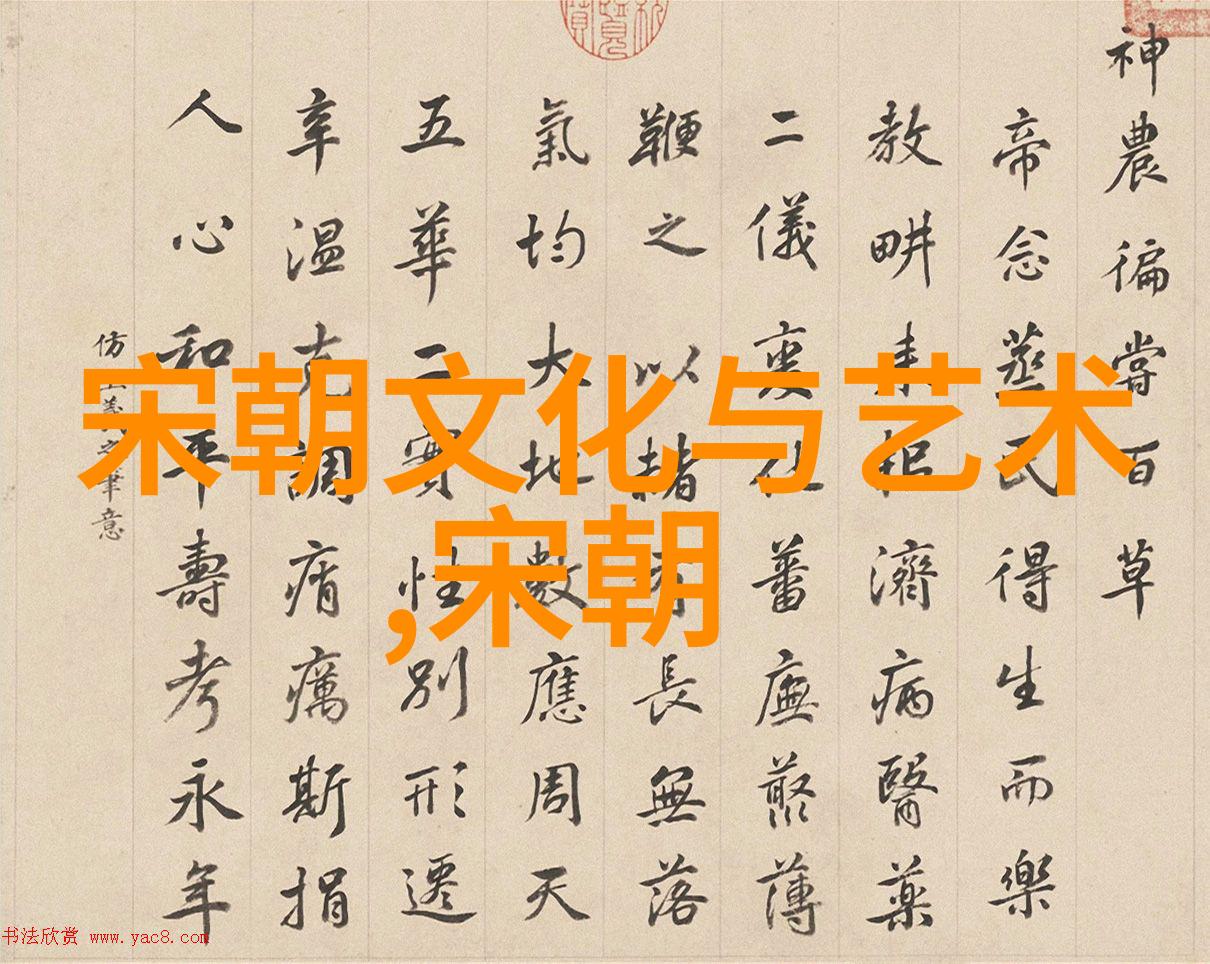 宋朝文化与艺术
,宋朝
神農徧嘗百草
帝念蒸民得生而樂
教畊耒耜濟病醫藥
二儀化蕃廡藂薄
鞭之以赭有長無落
氣均大地數應周天
五華二實性別形遷
辛温克調痟癘斯捐
人心和平壽考永年
仿王羲之筆意
书法欣赏 www.yac8.com